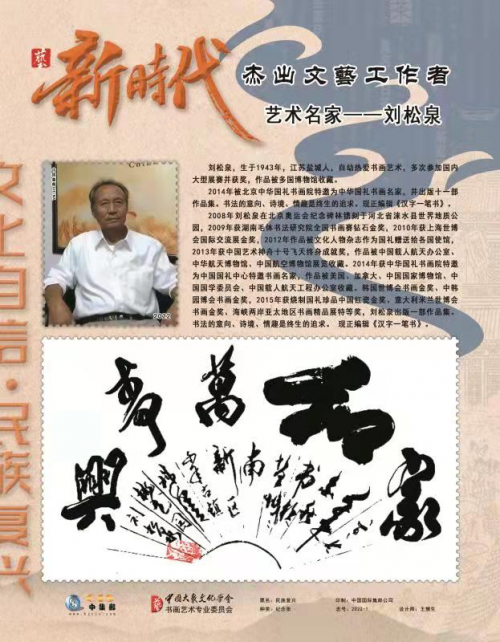 藝
新時代
杰出文藝工作者
艺术名家——刘松泉
文化自信·民族复兴
刘松泉，生于1943年，江苏盐城人。自幼热爱书画艺术，多次参加国内
大型展赛并获奖，作品被多国博物馆收藏。
2014年被北京中华国礼书画院特邀为中华国礼书画名家，并出版十一部
作品集。书法的意向、诗境、情趣是终生的追求。现正编辑《汉字一笔书》。
2008年刘松泉在北京奥运会纪念碑林镌刻于河北省涞水县世界地质公
园，2009年获湖南毛体书法研究院全国书画赛钻石金奖，2010年获上海世博
会国际交流展金奖，2012年作品被文化人物杂志作为国礼赠送给各国使馆，
2013年获中国艺术神舟十号飞天终身成就奖，作品被中国载人航天办公室，
中华航天博物馆、中国航空博物馆展览收藏。2014年获中华国礼书画院特邀
为中国国礼中心特邀书画名家，作品被美国、加拿大、中国国家博物馆，中
国国学委员会、中国载人航天工程办公室收藏。韩国世博会书画金奖、中韩
园博会书画金奖，2015年获烧制国礼珍品中国红瓷金奖，意大利米兰世博会
书画金奖，海峡两岸亚太地区书画精品展特等奖，刘松泉出版一部作品集。
书法的意向、诗境、情趣是终生的追求。 现正编辑《汉字一笔书》。
2022
家和萬事興
中集邮
中国大众文化学会
书画艺术专业委员会
票名：民族复兴
种类：纪念张
印制：中国国际集邮公司
志号：2022-1
设计师：王慧乐